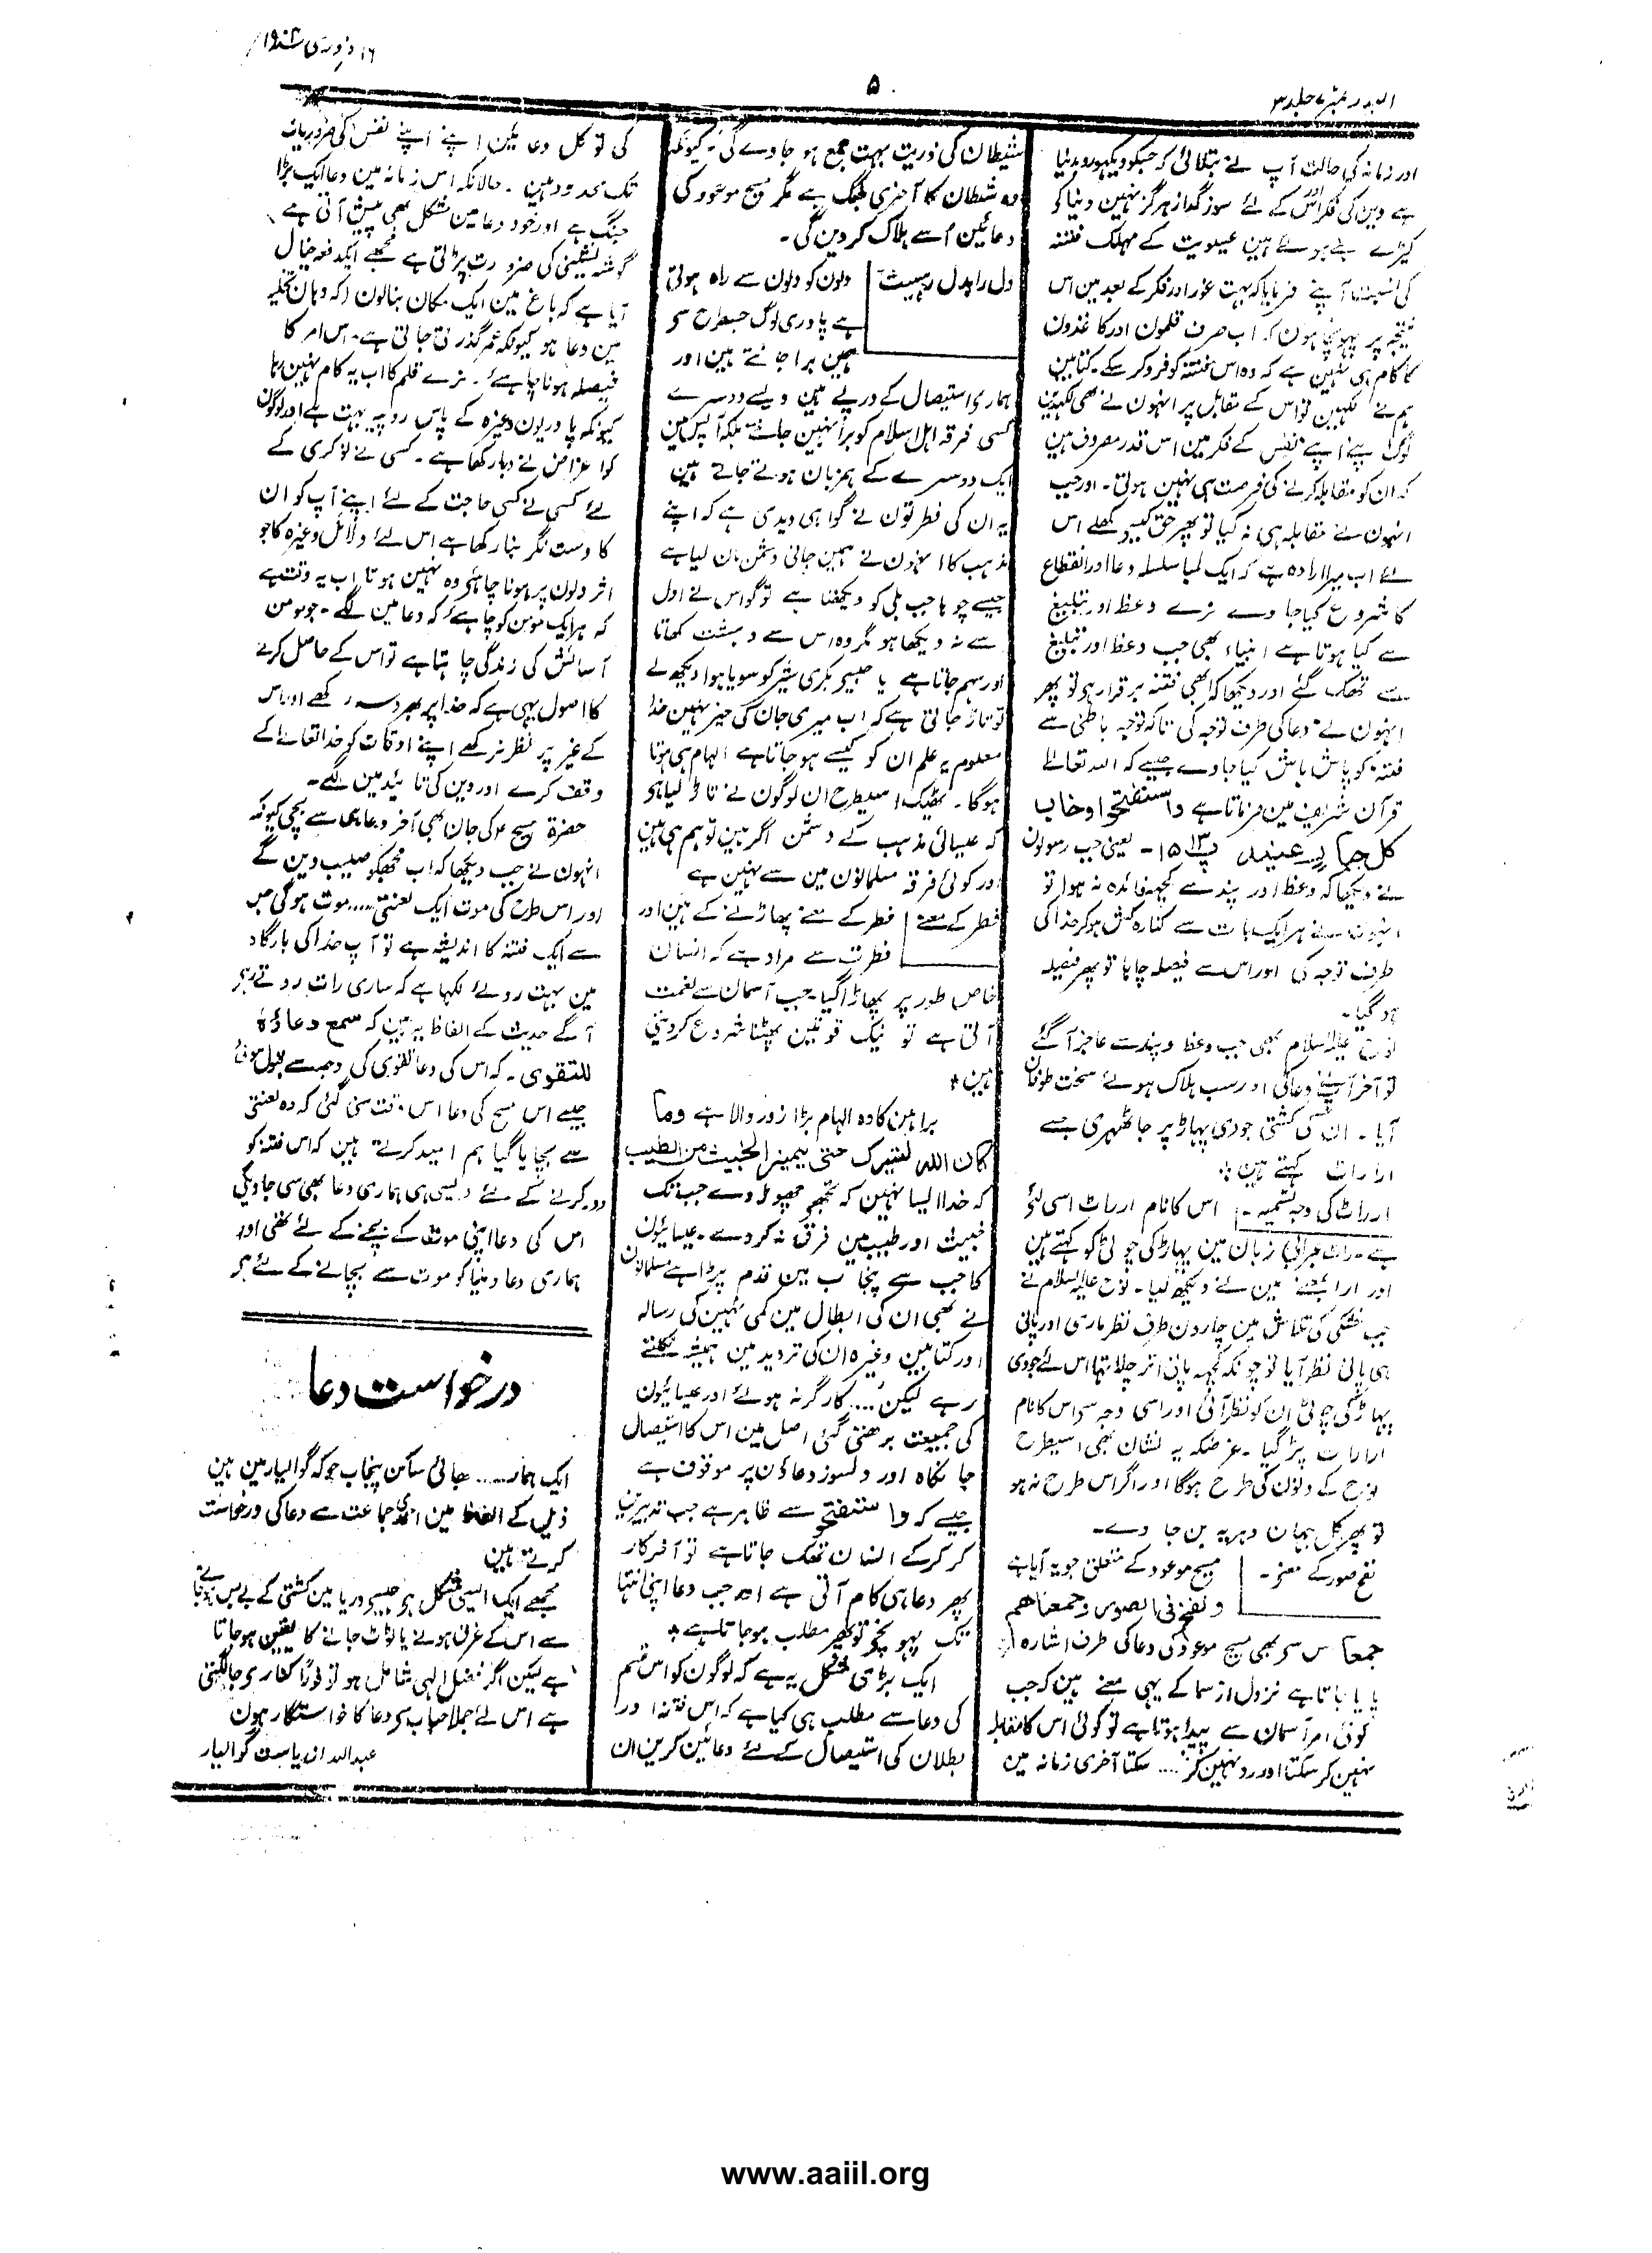 ۱۶ فروری ۱۹۰۴ء
۵
البدر نمبر ۷ جلد ۳
اور زمانہ کی حالت آپ نے بتلائی کہ جسکو دیکھو روبدنیا
ہے دین کی فکر اور اس کے لئے سوز گداز ہرگز نہین دنیا کو
کیڑے بنے ہوئے ہین عیسویت کے مہلک فتنہ
کی نسبت آپنے فرمایا کہ بہت غور اور فکر کے بعد مین اس
نتیجہ پر پہونچا ہون کہ اب صرف قلمون اور کاغذون
کا کام ہی نہین ہے کہ وہ اس فتنہ کو فرو کر سکے۔ کتابین
ہم نے لکھین تو اس کے مقابل پر انہون نے بھی لکھدین
لوگ اپنے اپنے نفس کے فکر مین اس قدر مصروف ہین
کہ ان کو مقابلہ کرنے کی فرصت ہی نہین ہوتی۔ اور جب
انہون نے مقابلہ ہی نہ کیا تو پھر حق کیسے کھلے اس
لئے اب میرا ارادہ ہے کہ ایک لمبا سلسلہ دعا اور انقطاع
کا شروع کیا جاوے نرے وعظ اور تبلیغ
سے کیا ہوتا ہے انبیاء بھی جب وعظ اور تبلیغ
سے تھک گئے اور دیکھا کہ ابھی فتنہ برقرار ہو تو پھر
انہون نے دعا کی طرف توجہ کی تاکہ توجہ باطنی سے
فتنہ کو پاش پاش کیا جاوے جیسے کہ اللہ تعالےٰ
قرآن شریف مین فرماتا ہے واستفتحوا وخاب
کل جبار عنید پ۱۳ ۱۵۔ یعنی جب رسولون
نے دیکھا کہ وعظ اور پند سے کچھ فائدہ نہ ہوا تو
انہون نے ہر ایک بات سے کنارہ کش ہو کر خدا کی
طرف توجہ کی اور اس سے فیصلہ چاہا تو پھر فیصلہ
ہو گیا۔
نوح علیہ السلام بھی جب وعظ و پند سے عاجز آ گئے
تو آخر آپنے دعا کی اور سب ہلاک ہوئے سخت طوفان
آیا۔ ان کی کشتی جودی پہاڑ پر جا ٹھہری جسے
ارارات کہتے ہین ؞
ارارات کی وجہ تسمیہ۔ اس کا نام ارارات اسی لئے
ہے۔ رات عبرانی زبان مین پہاڑ کی چوٹی کو کہتے ہین
اور ارا بمعنے مین نے دیکھ لیا۔ نوح علیہ السلام نے
جب خشکی کی تلاش مین چارون طرف نظر ماری اور پانی
ہی پانی نظر آیا تو چونکہ کچھ پانی اتر چلا تھا اس لئے جودی
پہاڑ کی چوٹی ان کو نظر آئی اور اسی وجہ سے اس کا نام
ارارات پڑ گیا۔ غرضکہ یہ نشان بھی اسیطرح
نوح کے دنون کی طرح ہوگا اور اگر اس طرح نہ ہو
تو پھر کل جہان دہریہ بن جاوے۔
نفخ صور کے معنے۔ مسیح موعود کے متعلق جو یہ آیا ہے
ونفخ فی الصور فجمعناھم
جمعا اس سے بھی مسیح موعود کی دعا کی طرف اشارہ
پایا جاتا ہے نزول از سما کے یہی معنے ہین کہ جب
کوئی امر آسمان سے پیدا ہوتا ہے تو کوئی اس کا مقابلہ
نہین کر سکتا اور رد نہین کر .... سکتا آخری زمانہ مین
شیطان کی ذریت بہت جمع ہو جاوے گی۔ کیونکہ
وہ شطان کا آخری جنگ ہے مگر مسیح موعود کی
دعائین اُسے ہلاک کر دین گی۔
دل را بدل رہیست دلون کو دلون سے راہ ہوتی
ہے پادری لوگ جسطرح سے
ہمین برا جانتے ہین اور
ہماری استیصال کے درپے ہین ویسے دوسرے
کسی فرقہ اہل اسلام کو برا نہین جانتے بلکہ آپس مین
ایک دوسرے کے ہمزبان ہوتے جاتے ہین
یہ ان کی فطرتون نے گواہی دیدی ہے کہ اپنے
مذہب کا انہون نے ہمین جانی دشمن مان لیا ہے
جیسے چوہا جب بلی کو دیکھتا ہے تو گو اس نے اول
سے نہ دیکھا ہو مگر وہ اس سے دہشت کھاتا
اور سہم جاتا ہے یا جیسے بکری شیر کو سویا ہوا دیکھ لے
تو تاڑ جاتی ہے کہ اب میری جان کی خیر نہین خدا
معلوم یہ علم ان کو کیسے ہو جاتا ہے الہام ہی ہوتا
ہوگا۔ ٹھیک اسیطرح ان لوگون نے تاڑ لیا ہو
کہ عیسائی مذہب کے دشمن اگر ہین تو ہم ہی ہین
اور کوئی فرقہ مسلمانون مین سے نہین ہے
فطر کے معنے فطر کے معنے پھاڑنے کے ہین اور
فطرت سے مراد ہے کہ انسان
خاص طور پر پھاڑا گیا جب آسمان سے نعمت
آتی ہے تو نیک قوتین پھٹنا شروع کر دیتی
ہین ؞
براہین کا وہ الہام بڑا زور والا ہے وما
کان اللہ لیترک حتی یمیز الخبیث من الطیب
کہ خدا ایسا نہین کہ تجھے چھوڑ دے جب تک
خبیث اور طیب مین فرق نہ کر دے۔ عیسائیون
کا جب سے پنجاب مین قدم پڑا ہے مسلمانون
نے بھی ان کی ابطال مین کمی نہین کی رسالہ
اور کتابین وغیرہ ان کی تردید مین ہمیشہ نکلتے
رہے لیکن .... کارگر نہ ہوئے اور عیسائیون
کی جمیعت بڑھتی گئی اصل مین اس کا استیصال
جانکاہ اور دلسوز دعاؤن پر موقوف ہے
جیسے کہ واستفتحوا سے ظاہر ہے جب تدبیرین
کر کر کے انسان تھک جاتا ہے تو آخر کار
پھر دعا ہی کام آتی ہے اور جب دعا اپنی انتہا
تک پہونچے تو پھر مطلب ہو جاتا ہے ؞
ایک بڑی مشکل یہ ہے کہ لوگون کو اس قسم
کی دعا سے مطلب ہی کیا ہے کہ اس فتنہ اور
بطلان کی استیصال کے لئے دعائین کرین ان
کی تو کل دعائین اپنے اپنے نفس کی ضروریات
تک محدود ہین۔ حالانکہ اس زمانہ مین دعا ایک بڑا
جنگ ہے اور خود دعا مین مشکل بھی پیش آتی ہے
گوشہ نشینی کی ضرورت پڑتی ہے مجھے ایک دفعہ خیال
آیا ہے کہ باغ مین ایک مکان بنا لون کہ وہان تخلیہ
مین دعا ہو کیونکہ عمر گذرتی جاتی ہے۔ اس امر کا
فیصلہ ہونا چاہئے۔ نرے قلم کا اب یہ کام نہین رہا
کیونکہ پادریون وغیرہ کے پاس روپیہ بہت ہے اور لوگون
کو اغراض نے دبا رکھا ہے۔ کسی نے نوکری کے
لئے کسی نے کسی حاجت کے لئے اپنے آپ کو ان
کا دست نگر بنا رکھا ہے اس لئے دلائل وغیرہ کا جو
اثر دلون پر ہونا چاہئے وہ نہین ہوتا اب یہ وقت ہے
کہ ہر ایک مومن کو چاہئے کہ دعا مین لگے۔ جو مومن
آسائش کی زندگی چاہتا ہے تو اس کے حاصل کرنے
کا اصول یہی ہے کہ خدا پر بھروسہ رکھے اور اس
کے غیر پر نظر نہ رکھے اپنے اوقات کو خدا تعالےٰ کے
وقف کرے اور دین کی تائید مین لگے۔
حضرۃ مسیح ؑ کی جان بھی آخر دعا ہی سے بچی کیونکہ
انہون نے جب دیکھا کہ اب مجھکو صلیب دین گے
اور اس طرح کی موت ایک لعنتی .... موت ہوگی جس
سے ایک فتنہ کا اندیشہ ہے تو آپ خدا کی بارگاہ
مین بہت روئے لکھا ہے کہ ساری رات روتے رہے
آگے حدیث کے الفاظ یہ ہین کہ سمع دعاؤہ
للتقوی۔ کہ اس کی دعا تقوی کی وجہ سے قبول ہوئی
جیسے اس مسیح کی دعا اس وقت سنی گئی کہ وہ لعنتی
سے بچایا گیا ہم امید کرتے ہین کہ اس فتنہ کو
دور کرنے کے لئے ویسی ہی ہماری دعا بھی سنی جاویگی
اس کی دعا اپنی موت کے بچنے کے لئے تھی اور
ہماری دعا دنیا کو موت سے بچانے کے لئے ہے
درخواست دعا
ایک ہمار ..... بھائی ساکن پنجاب جو کہ گوالیار مین ہین
ذیل کے الفاظ مین احمدی جماعت سے دعا کی درخواست
کرتے ہین
مجھے ایک ایسی مشکل ہے جیسے دریا مین کشتی کے بے بس ہو جانے
سے اس کے غرق ہونے یا ٹوٹ جانے کا یقین ہو جاتا
ہے لیکن اگر فضل الٰہی شامل ہو تو فوراً کناری جا لگتی
ہے اس لئے جملہ احباب سے دعا کا خواستگار ہون
عبداللہ از ریاست گوالیار
www.aaiil.org